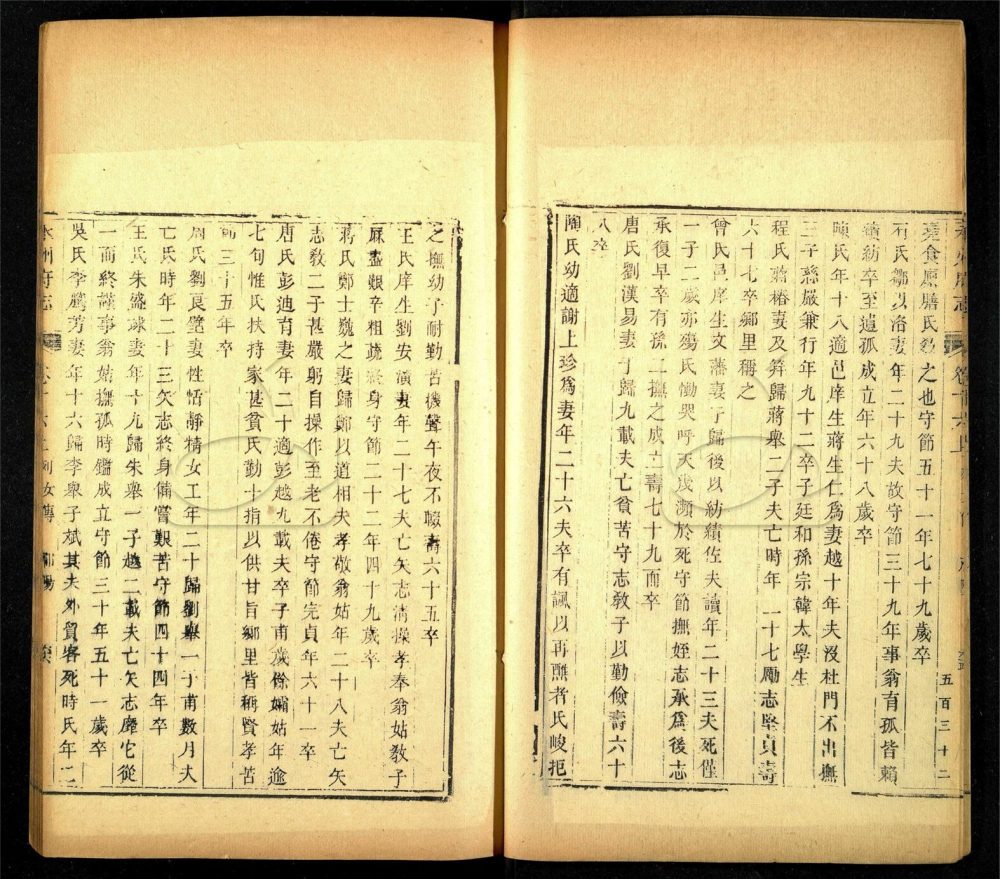 永州府志
五百三十二
食廩膳氏教之也守節五十一年七十九歲卒
石氏鄒以洛妻年二十九夫故守節三十九年事翁育孤皆賴
績紡卒至遺孤成立年六十八歲卒
陳氏年十八適邑庠生蔣生仁爲妻越十年夫沒杜門不出撫
三子孫嚴兼行年九十二卒子廷和孫宗韓太學生
程氏蔣椿妻及笄歸蔣舉二子夫亡時年二十七勵志堅貞壽
六十七卒鄉里稱之
曾氏邑庠生文藩妻于歸後以紡績佐夫讀年二十三夫死僅
一子二歲亦殤氏慟哭呼天歲瀕於死守節撫姪志承爲後志
承復早卒有孫二撫之成立壽七十九而卒
唐氏劉漢易妻于歸九載夫亡貧苦守志敎子以勤儉壽六十
八卒
陶氏幼適謝上珍爲妻年二十六夫卒有諷以再醮者氏峻拒
之撫幼子耐勤苦機聲午夜不啜壽六十五卒
王氏庠生劉安瀾妻年二十七夫亡矢志淸操孝奉翁姑敎子
麻盡艱辛粗疏終身守節二十二年四十九歲卒
蔣氏鄭士巍之妻歸鄭以道相夫孝敬翁姑年二十八夫亡矢
志敎二子甚嚴躬自操作至老不倦守節完貞年六十一卒
唐氏彭迪育妻年二十適彭越九載夫卒子甫歲餘孀姑年逾
七旬惟氏扶持家甚貧氏勤十指以供甘旨鄉里皆稱賢孝苦
節三十五年卒
周氏劉良璧妻性恬靜精女工年二十歸劉舉一子甫數月夫
亡氏時年二十三矢志終身備嘗艱苦守節四十四年卒
王氏朱盛建妻年十九歸朱舉一子越二載夫亡矢志靡它從
一而終謹事翁姑撫孤時鑑成立守節三十年五十一歲卒
吳氏李鵬芳妻年十六歸李舉子斌其夫外貿客死時氏年二
永州府志
卷十六上 列女傳 祁陽